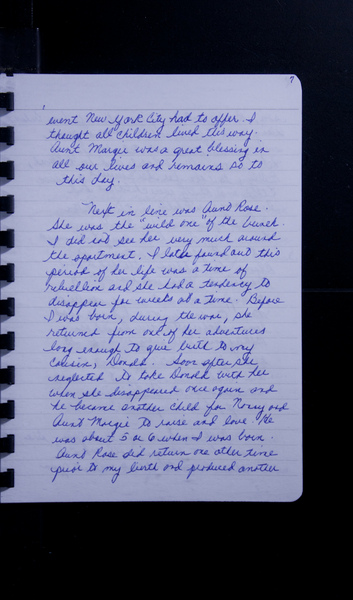 7
event New York City had to offer. I
thought all children lived this way.
Aunt Margie was a great blessing in
all our lives and remains so to
this day.
Next in line was Aunt Rose.
She was the "wild one" of the bunch.
I did not see her very much around
the apartment. I later found out this
period of her life was a time of
rebellion and she had a tendency to
disappear for weeks at a time. Before
I was born, during the war, she
returned from one of her adventures
long enough to give birth to my
cousin, Donald. Soon after she
neglected to take Donald with her
when she disappeared once again and
he became another child for Nanny and
Aunt Margie to raise and love. He
was about 5 or 6 when I was born.
Aunt Rose did return one other time
prior to my birth and produced another